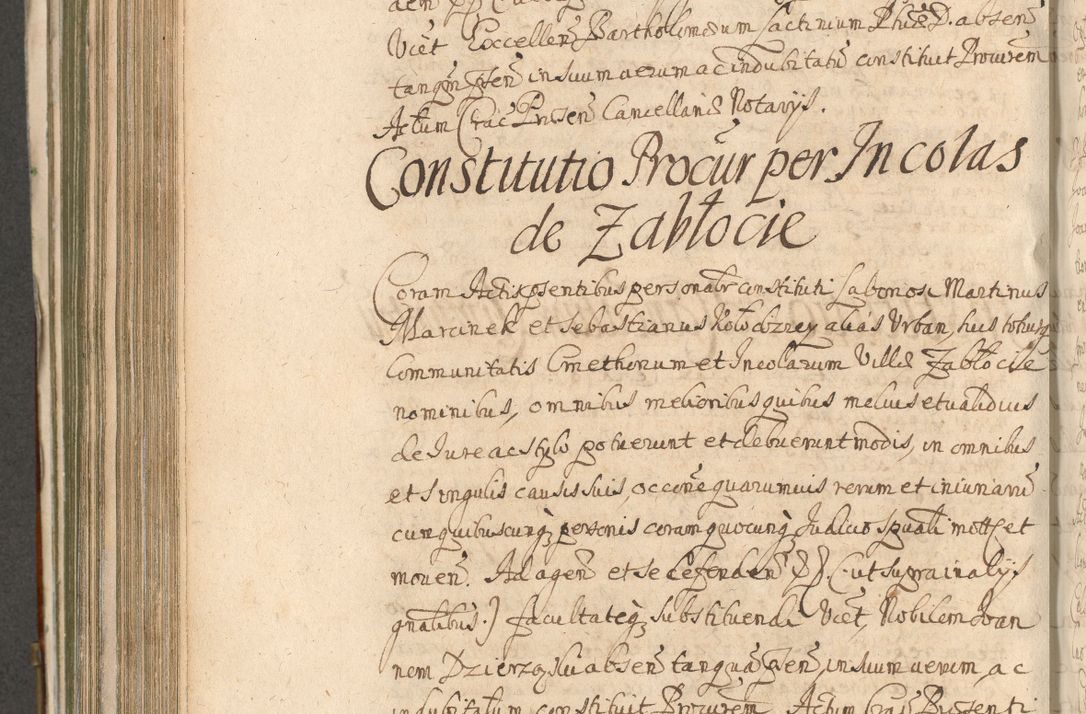 Vićet Excellen Bartholomæum Jactinium Phiæ D. absen
tanqm Psen in suum verum ac indubitatu constituit Procurem
Actum Crac Prisen Cancellariæ Notarijs.
Constitutio Procur per Incolas
de Zabłocie
Coram Actis psentibus personalr constituti Laboriosi Martinus
Marcinek et Sebastianus Kołodzrey alias Urban, huis totiusq
Communitatis Cmethonum et Incolarum Villæ Zabłocise
nominibus, omnibus melioribus quibus melius et validius
de Jure ac stylo potuerunt et debuerunt modis, in omnibus
et singulis causis suis, occõne quarumvis rerum et iniuriarũ
cum quibuscunq personis coram quocunq Judicio spuali mott et
moven. Ad agen et se defenden PP. (ut supra in alijs
gnalibus.) facultateq substituendi Vićet, Nobilem Joan
nem Dzierzqski absen tanquã Psen, in suum verum, ac
indubitatum constituit Procurem Actum Crac Præsenti